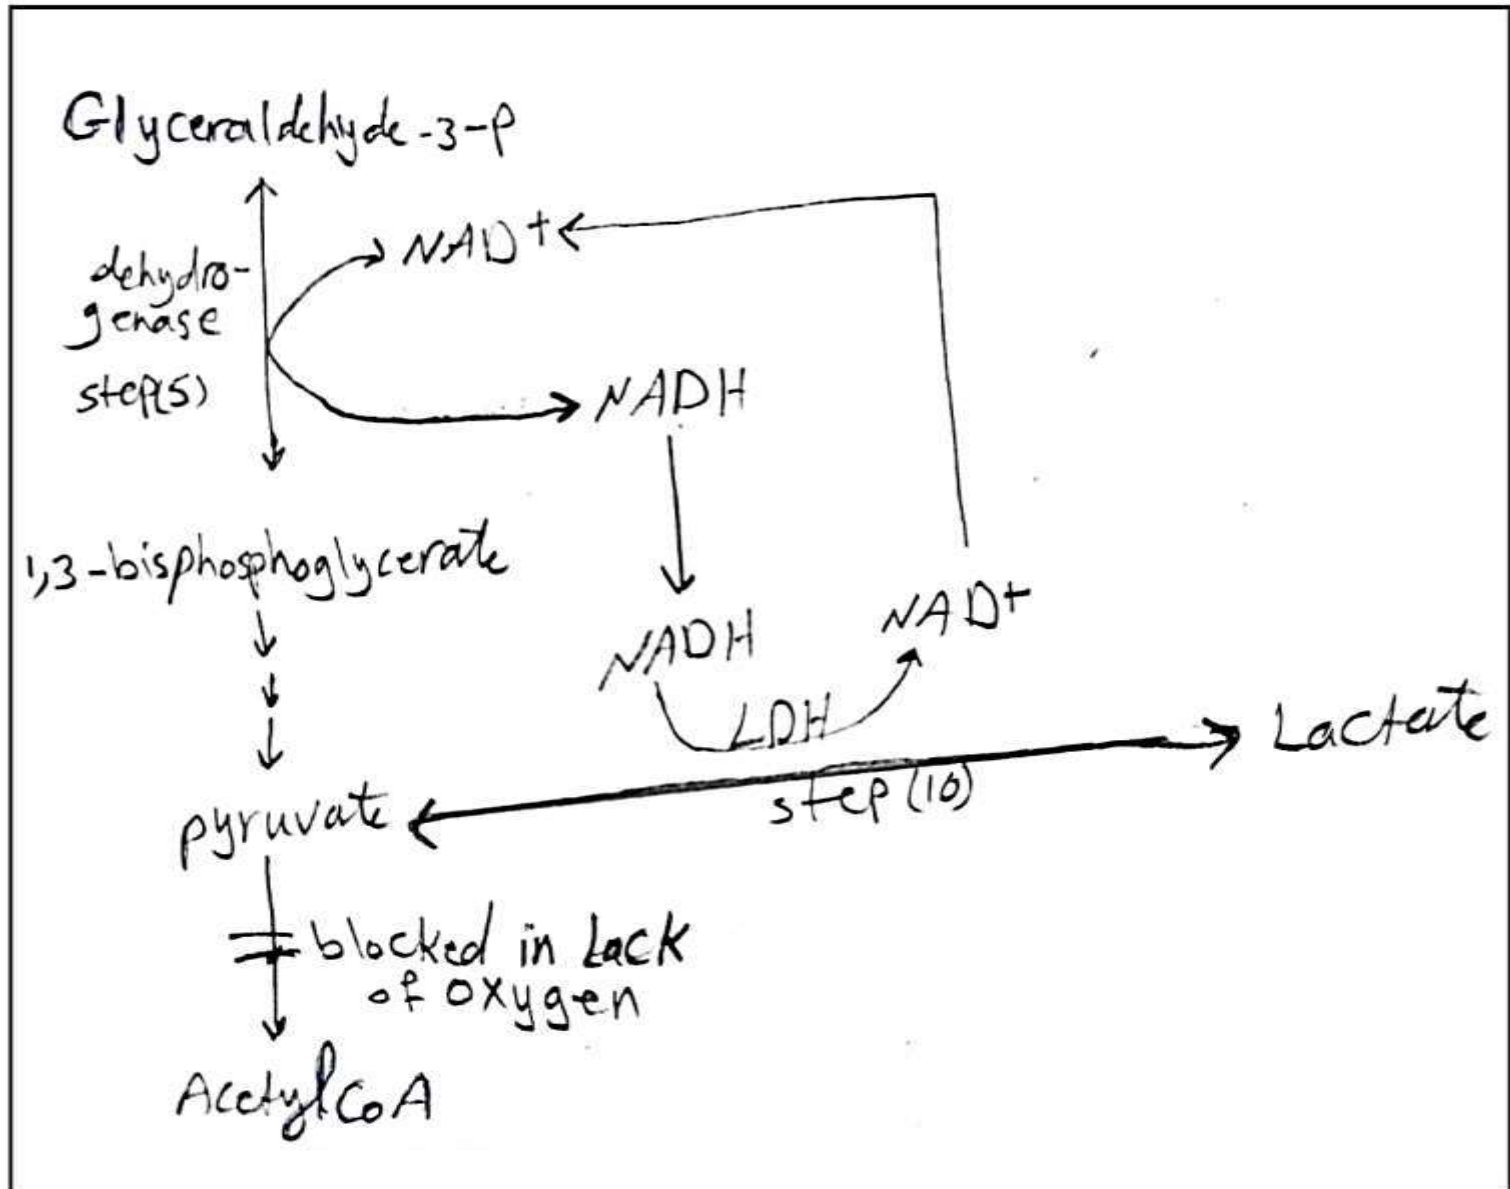 Glyceraldehyde-3-P
NAD+
dehydro-
genase
step(5)
NADH
1,3-bisphosphoglycerate
NADH
NAD+
LDH
Lactate
step (10)
pyruvate
blocked in Lack
of oxygen
Acetyl CoA